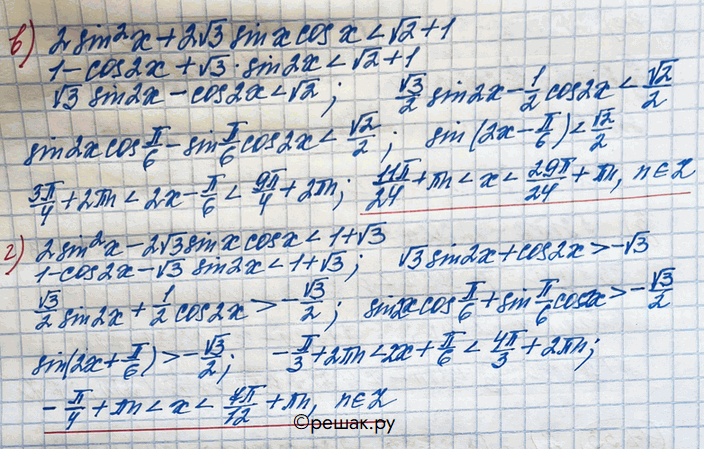 в) 2 sin²x + 2√3 sin x cos x < √2 + 1
1 - cos 2x + √3 · sin 2x < √2 + 1
√3 sin 2x - cos 2x < √2 ; √3/2 sin 2x - 1/2 cos 2x < √2/2
sin 2x cos π/6 - sin π/6 cos 2x < √2/2 ; sin (2x - π/6) < √2/2
3π/4 + 2πn < 2x - π/6 < 9π/4 + 2πn ; 11π/24 + πn < x < 29π/24 + πn, n ∈ Z
г) 2 sin²x - 2√3 sin x cos x < 1 + √3
1 - cos 2x - √3 sin 2x < 1 + √3 ; √3 sin 2x + cos 2x > -√3
√3/2 sin 2x + 1/2 cos 2x > -√3/2 ; sin 2x cos π/6 + sin π/6 cos 2x > -√3/2
sin(2x + π/6) > -√3/2 ; -π/3 + 2πn < 2x + π/6 < 4π/3 + 2πn ;
-π/4 + πn < x < 7π/12 + πn, n ∈ Z
©решак.ру